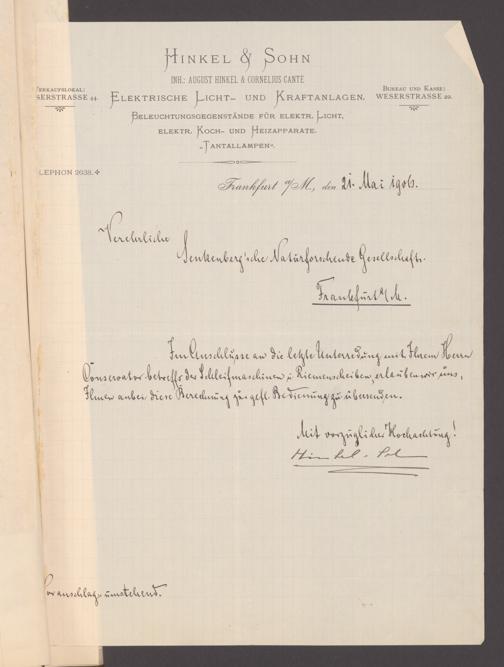 HINKEL & SOHN
INH.: AUGUST HINKEL & CORNELIUS CANTÉ
VERKAUFSLOKAL:
WESERSTRASSE 44.
ELEKTRISCHE LICHT- UND KRAFTANLAGEN.
BUREAU UND KASSE:
WESERSTRASSE 29.
BELEUCHTUNGSGEGENSTÄNDE FÜR ELEKTR. LICHT,
ELEKTR. KOCH- UND HEIZAPPARATE.
„TANTALLAMPEN“.
LEPHON 2638.
Frankfurt a/M., den 21. Mai 1906.
Verehrliche
Senkenberg'sche Naturforschende Gesellschaft.
Frankfurt a/M.
Im Anschlusse an die letzte Unterredung mit Ihrem Herrn
Conservator betreffs der Schleifmaschinen u. Riemenscheiben, erlauben wir uns,
Ihnen anbei diese Berechnung zur gefl. Bedienung zu übersenden.
Mit vorzüglicher Hochachtung!
Hinkel & Sohn
oranschlag umstehend.